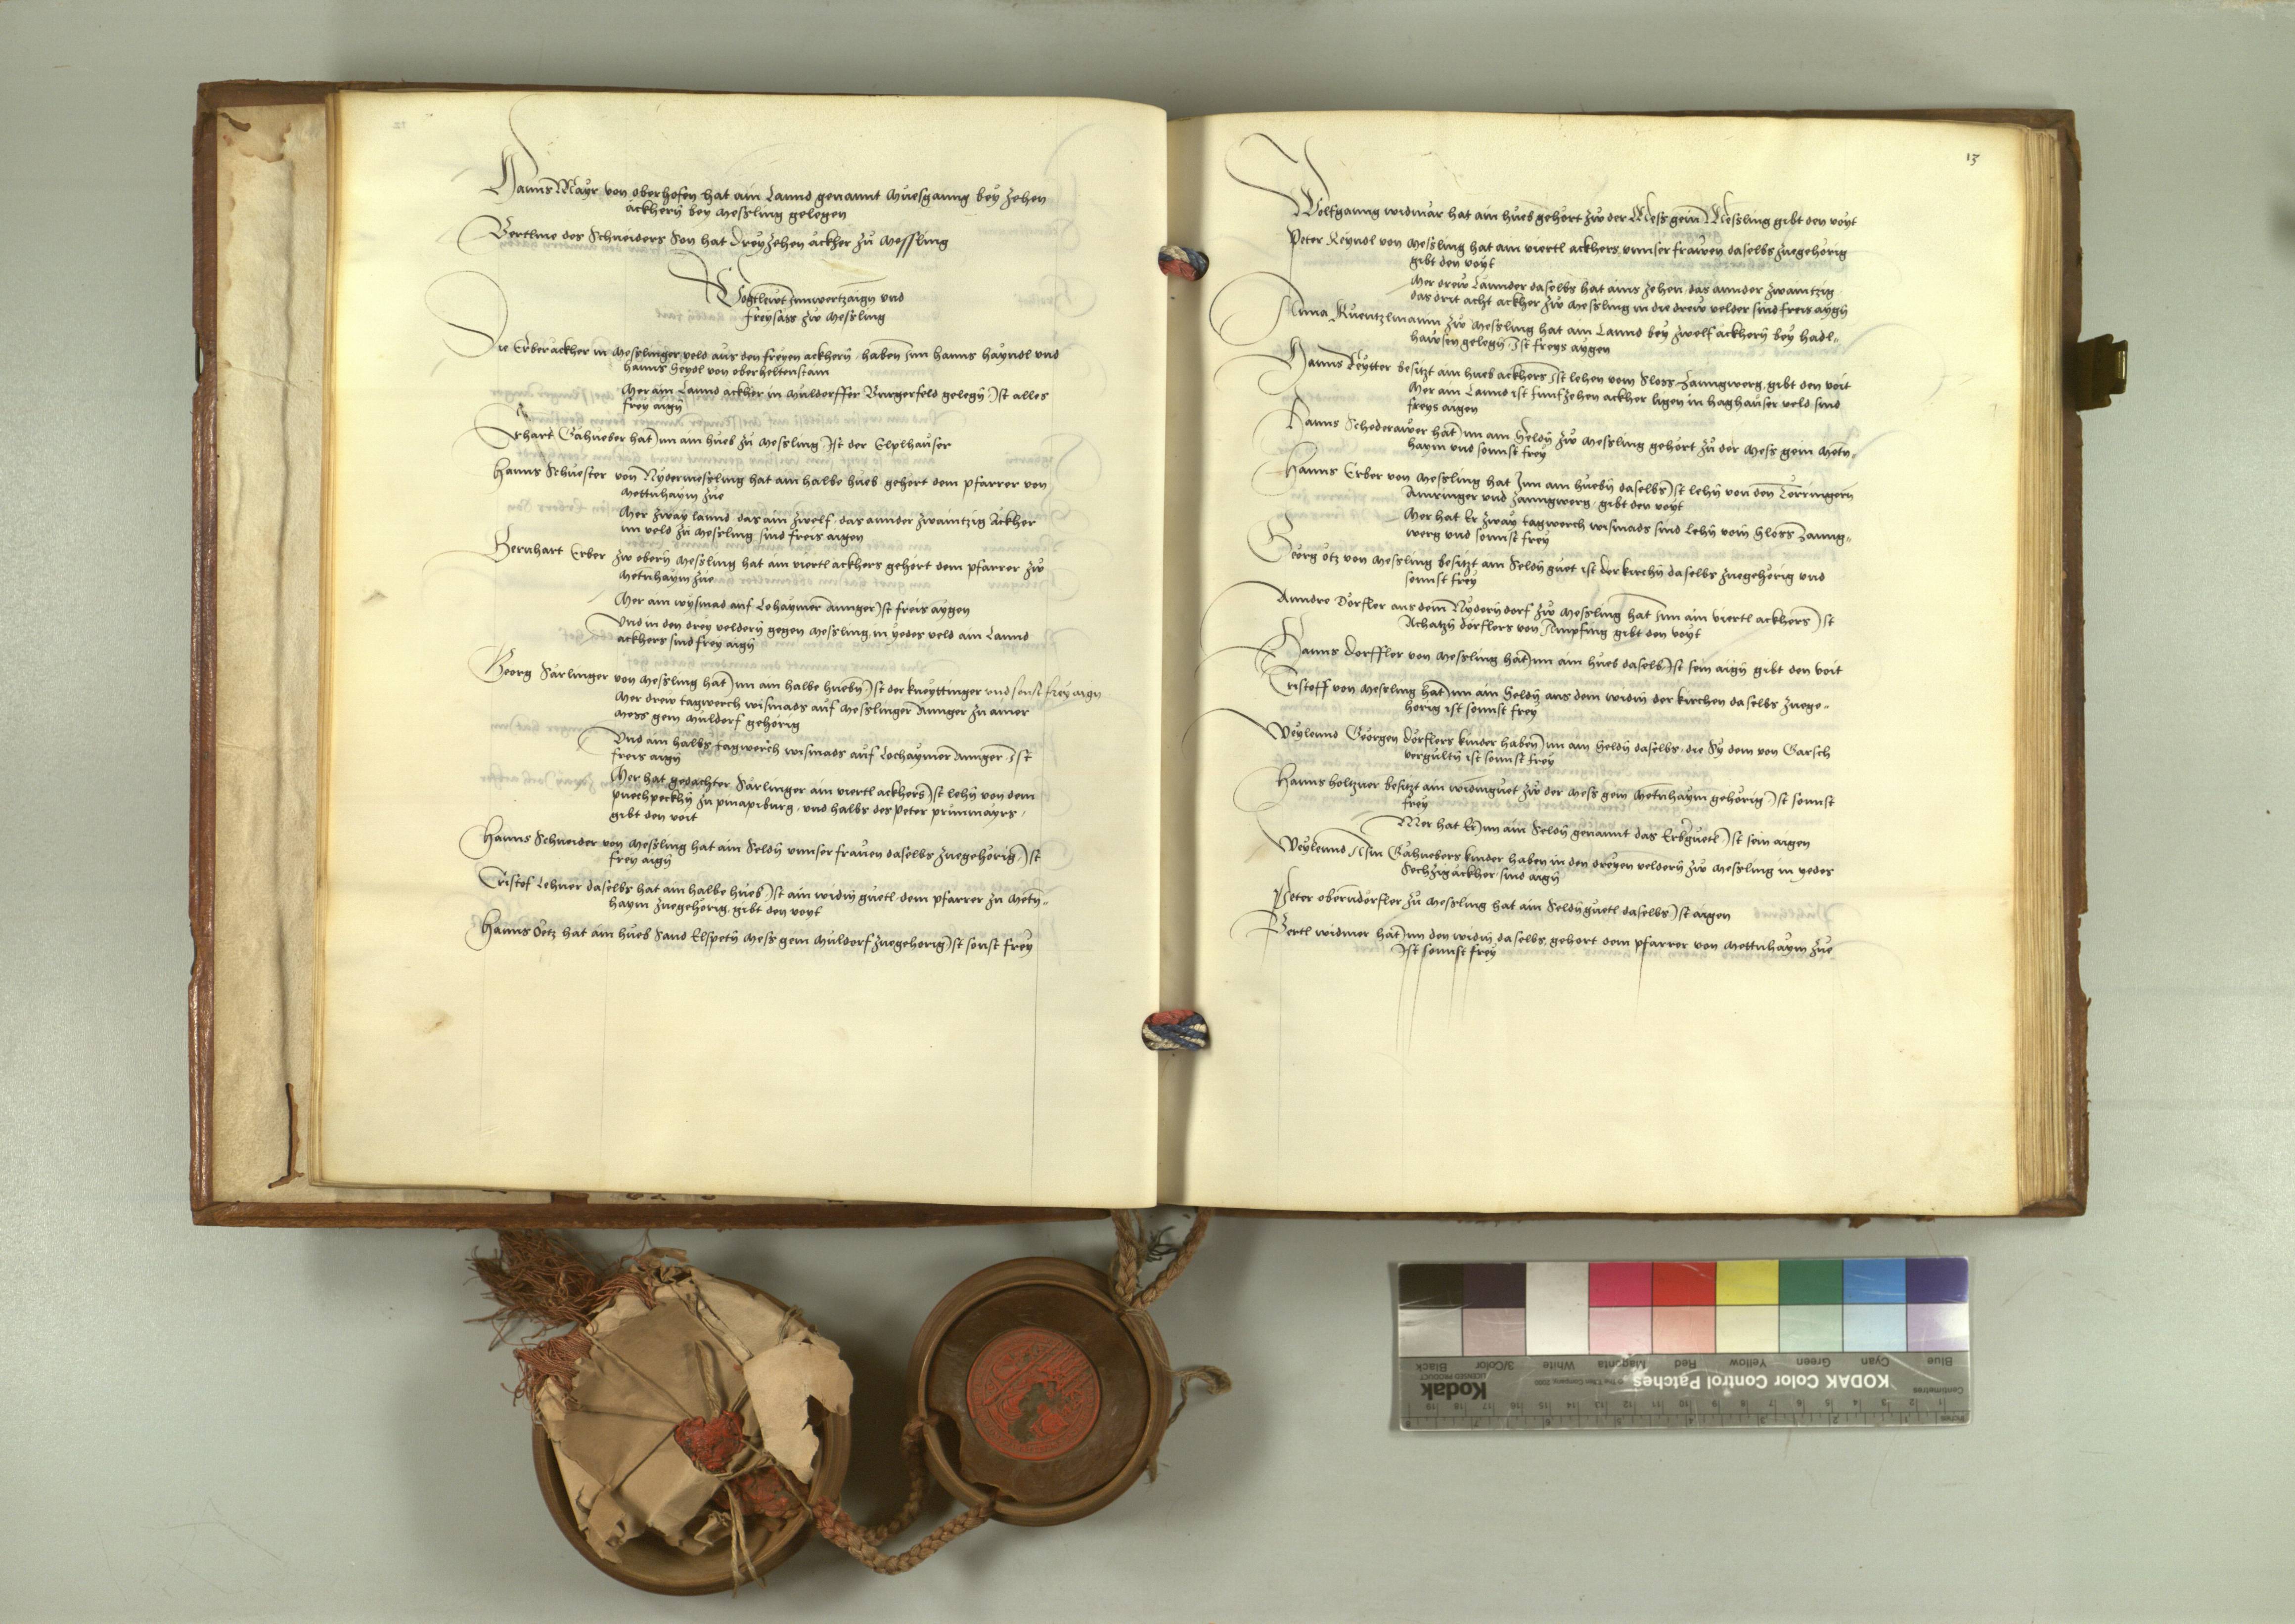 Hanns Mayr von oberhofen hat ain Lannd genannt Muesganng bey zehen
äckhern bey Messling gelegen
Bertlme des Schneiders Son hat dreyzehen äckher zu Messling
Vogtlewt Innwertzaign und
freysäss zw Messling
Die Erberäckher in Messlinger veld aus den freyen äckhern haben Inn hanns hayndl und
hanns Seydl von oberheltenstain
Mer ain Lannd äckher in Muldorffer Burgerfeld gelegn Ist alles
frey aign
Erhart Gähueber hat Inn ain hueb zu Messling Ist der Elplhauser
Hanns Schuester von Nydermessling hat ain halbe hueb gehort dem pfarrer von
Mettnhaym zue
Mer zway lannd das ain zwelf das annder zwaintzig Ackher
im veld zu Messling sind freis aigen
Bernhart Erber zw obern Messling hat ain viertl ackhers gehort dem pfarrer zw
Metnhaym zue
Mer ain wysmad auf Lohaymer Annger Ist freis aygen
Und in den drey veldern gegen Messling in yedes veld ain Lannd
ackhers sind frey aign
Georg Särlinger von Messling hat Inn ain halbe huebn Ist der kneyttinger und sonst frey aign
Mer drew tagwerch wismads auf Messlinger Annger zu ainer
Mess gem Muldorf gehörig
Und ain halbs tagwerch wismads auf Lochaymer Annger Ist
freis aign
Mer hat gedachter Särlinger ain viertl ackhers Ist lehn von dem
puechpeckhn zu pmapiburg und halbs des Peter prunmayrs
gibt den voit
Hanns Schneider von Messling hat ain Seldn unnser frauen daselbs zuegehörig Ist
frey aign
Cristof Lehner daselbs hat ain halbe hueb Ist ain widn guetl dem pfarrer zu Metn-
haym zuegehörig gibt den voyt
Hanns Oetz hat ain hueb Sand Elspetn Mess gem Muldorf zuegehorig Ist sonst frey
13
Wolfganng widmar hat ain hueb gehört zw der Mess gein Messling gibt den voyt
Peter Reyndl von Messling hat ain viertl ackhers unnser frawen daselbs zuegehörig
gibt den voyt
Mer drew Lännder daselbs hat ains zehen das annder zwaintzig
das drit acht äckher zw Messling in die drew velder sind freis aygn
Anna Kuentzlmanin zw Messling hat ain Lannd bey zwelf äckhern bey hadl-
hawsen gelegn Ist freys aygen
Hanns Reytter besitzt ain hueb ackhers Ist lehen vom Sloss Zanngwerg gibt den voit
Mer ain Lannd ist funfzehen äckher ligen in haghauser veld sind
freys aigen
Hanns Schederawer hat Inn ain Seldn zw Messling gehört zu der Mess gein Metn-
haym und sonnst frey
Hanns Erber von Messling hat Inn ain huebn daselbs Ist lehn von den Törringern
Amringer und Zanngwerg gibt den voyt
Mer hat Er zway tagwerch wismads sind Lehn vom Sloss Zanng-
werg und sonnst frey
Georg Otz von Messling besitzt ain Seldn guet ist der kirchn daselbs zuegehörig und
sonnst frey
Anndre Dorfler aus dem Nydern dorf zw Messling hat Inn ain viertl ackhers Ist
Achatzn dorflers von Ampfing gibt den voyt
Hanns dorffler von Messling hat Inn ain hueb daselbs Ist sein aign gibt den voit
Cristoff von Messling hat Inn ain Seldn aus dem widn der kirchen daselbs zuege-
hörig ist sonnst frey
Weylennd Georgen Dorflers kinder haben Inn ain Seldn daselbs die Sy dem von Garsch
vergultn ist sonnst frey
Hanns holtzner besitzt ain widmguet zw der Mess gem Metnhaym gehörig Ist sonnst
frey
Mer hat Er Inn ain Seldn genannt das Erbguetl Ist sein aigen
Weylennd Asm Gähuebers kinder haben in den dreyen veldern zw Messling in yedes
Sechzig äckher sind aign
Peter oberndorfler zu Messling hat ain Seldn guetl daselbs Ist aigen
Bertl widmer hat Inn den widn daselbs gehort dem pfarrer von Mettnhaym zue
Ist sonnst frey
KODAK Color Control Patches
Kodak
LICENSED PRODUCT
Blue Cyan Green Yellow Red Magenta White 3/Color Black
Centimetres
Inches